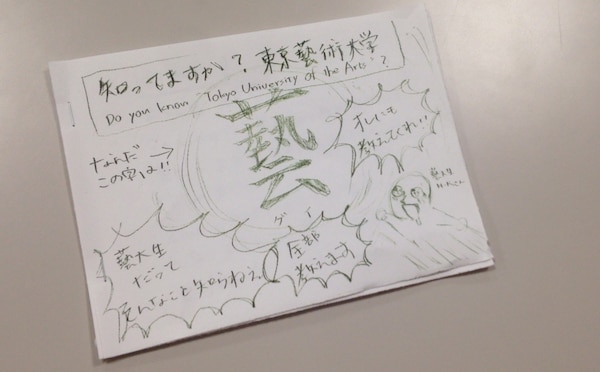 知ってますか？東京藝術大学
Do you know "Tokyo University of the Arts"?
なんだ
この字は!!
→
藝
ゲイ
オレにも
教えてくれ!!
藝大生
だって
こと知らねえ
全部
教えます